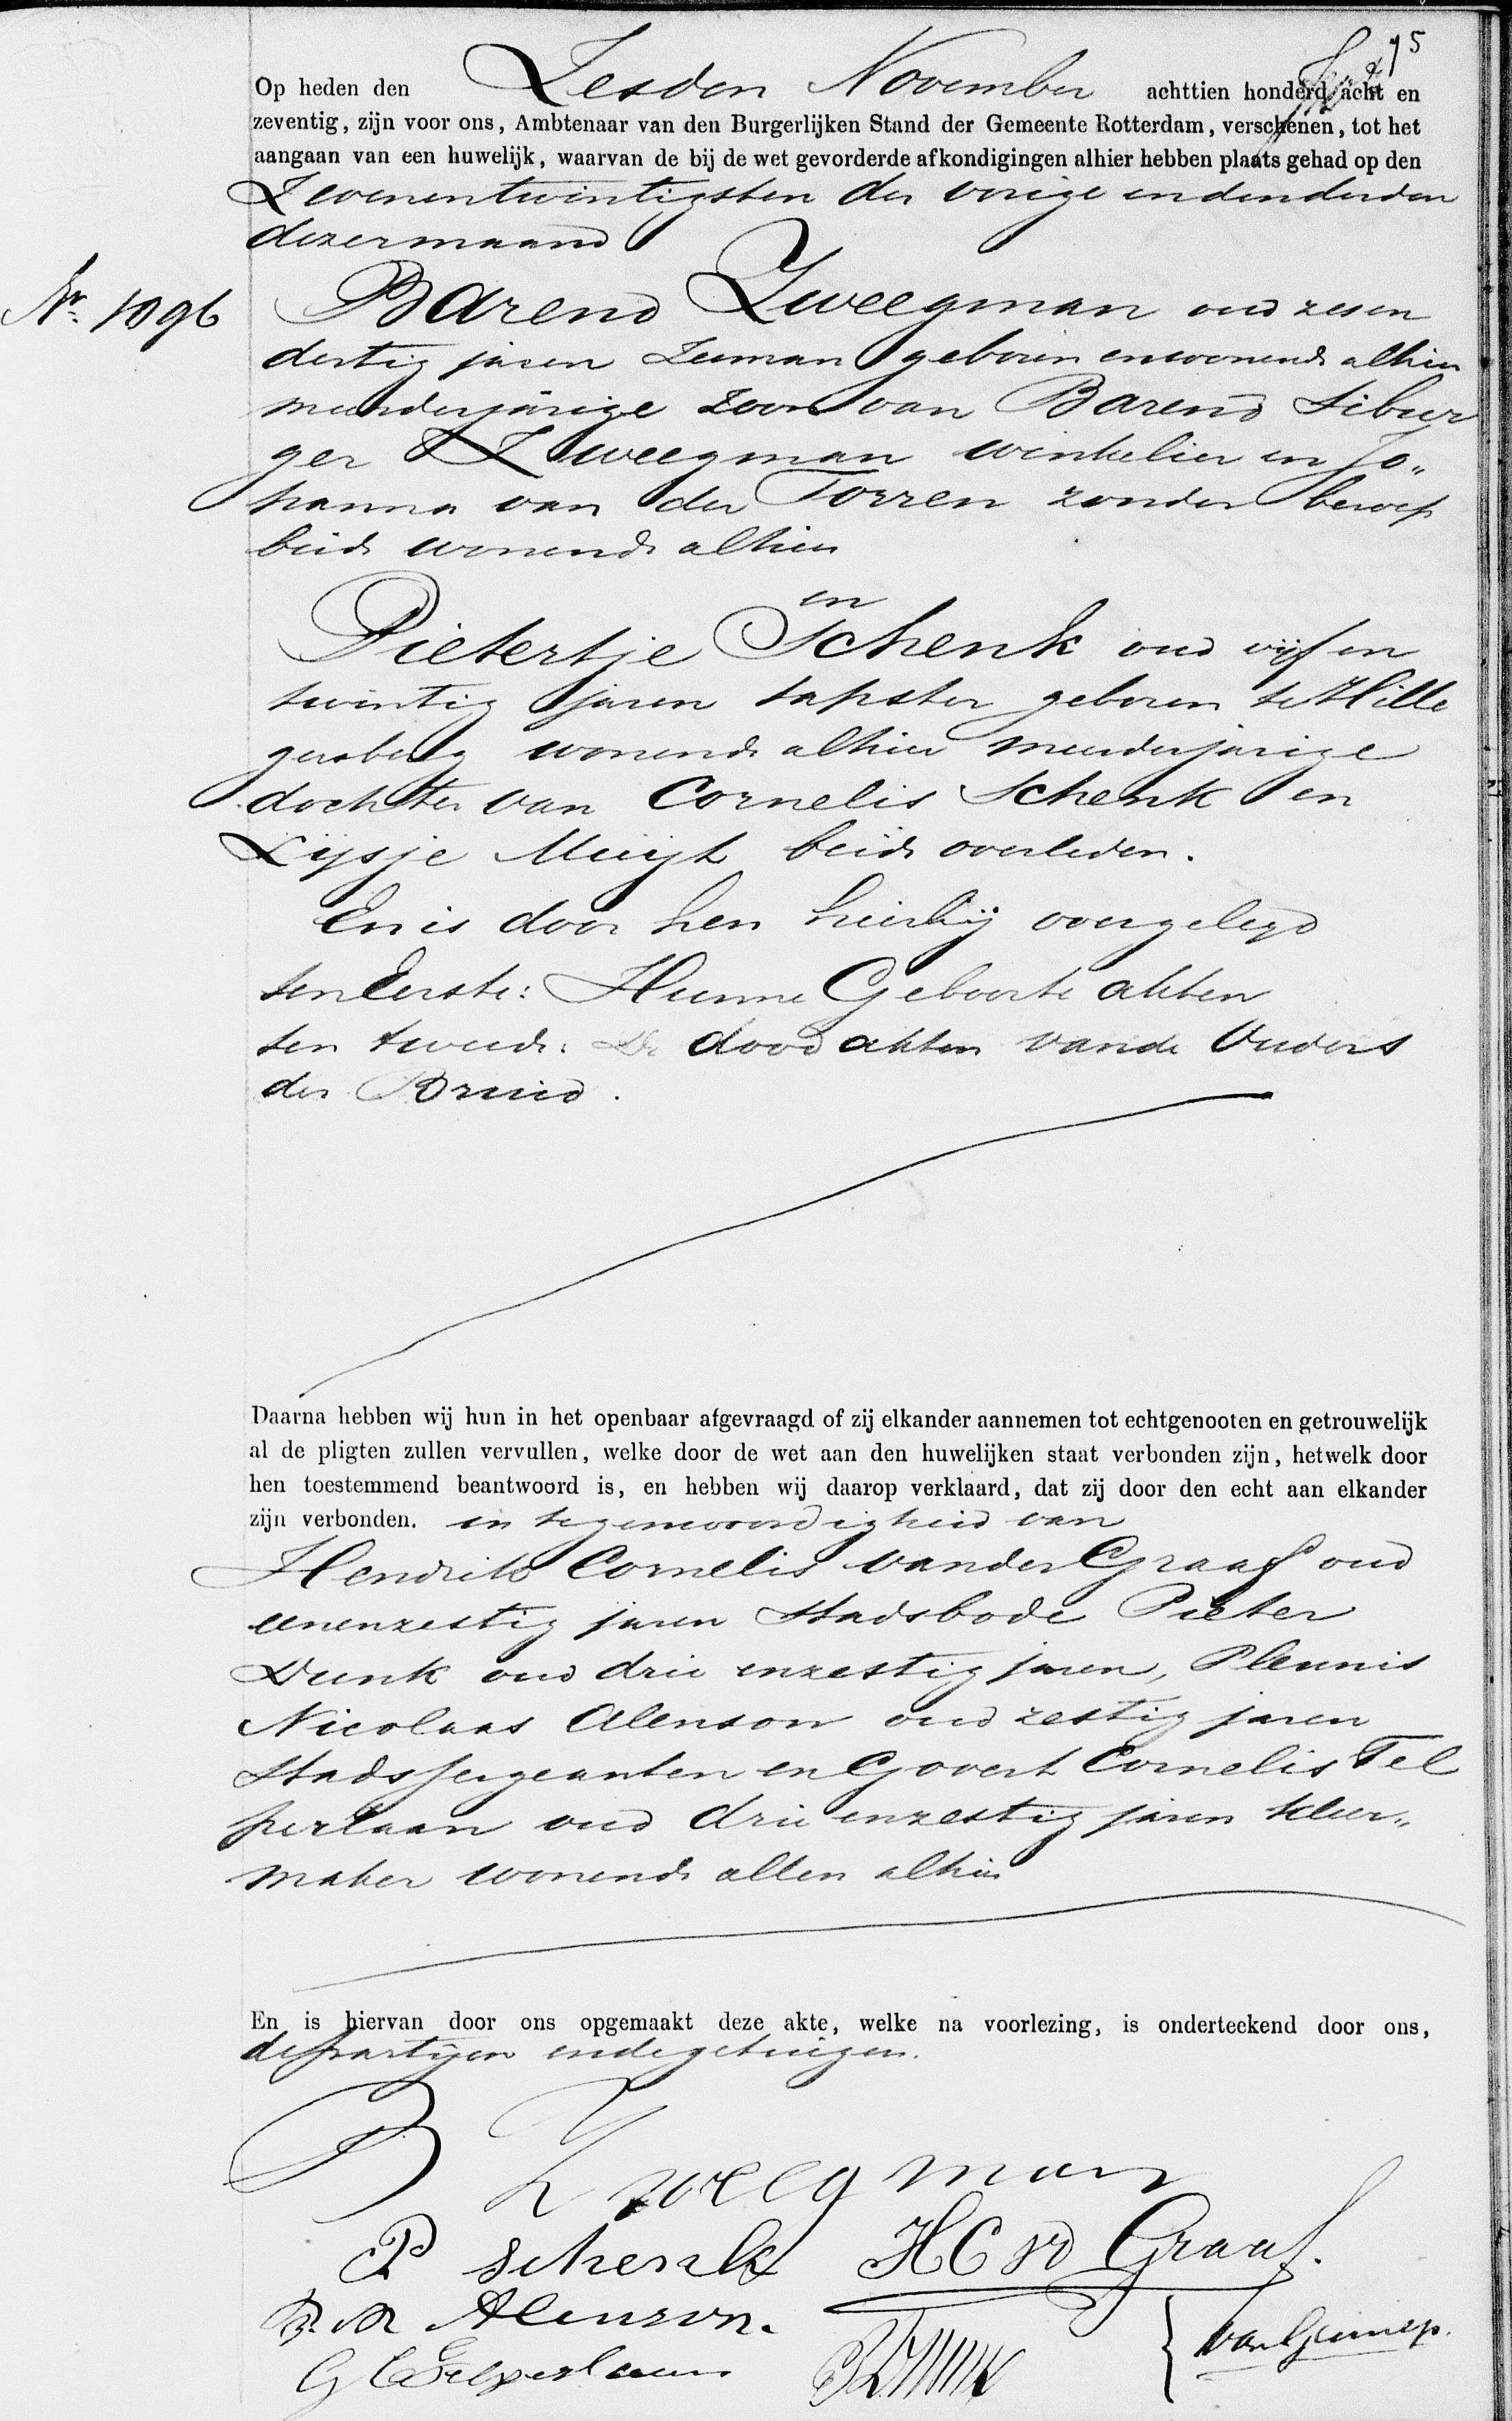 75
Op heden den Zesden November achttien honderd acht en
zeventig, zijn voor ons, Ambtenaar van den Burgerlijken Stand der Gemeente Rotterdam, verschenen, tot het
aangaan van een huwelijk, waarvan de bij de wet gevorderde afkondigingen alhier hebben plaats gehad op den
Zevenentwintigsten der vorige en den derden
dezer maand
Nr. 1096
Barend Zweegman oud zesen
dertig jaren Zeeman geboren en wonende alhier
meerderjarige Zoon van Barend Sibur
ger Zweegman winkelier en Jo„
hanna van der Torren zonder beroep
beide wonende alhier
en
Pietertje Schenk oud vijf en
twintig jaren tapster geboren te Hille
gersberg wonende alhier meerderjarige
dochter van Cornelis Schenk en
Lijsje Muijt beide overleden.
En is door hen hierbij overgelegd
ten Eerste: Hunne Geboorte akten
ten tweede: De dood akten van de Ouders
der Bruid.
Daarna hebben wij hun in het openbaar afgevraagd of zij elkander aannemen tot echtgenooten en getrouwelijk
al de pligten zullen vervullen, welke door de wet aan den huwelijken staat verbonden zijn, hetwelk door
hen toestemmend beantwoord is, en hebben wij daarop verklaard, dat zij door den echt aan elkander
zijn verbonden. in tegenwoordigheid van
Hendrik Cornelis van der Graaf oud
eenenzestig jaren Stadsbode Pieter
Dunk oud drie enzestig jaren, Pleunis
Nicolaas Alenson oud zestig jaren
Stadssergeanten en Govert Cornelis Tel
perlaan oud drie enzestig jaren kleer„
maker wonende allen alhier
En is hiervan door ons opgemaakt deze akte, welke na voorlezing, is onderteekend door ons,
de partijen en de getuigen.
B Zweegman
P schenk HC vd Graaf.
P. N Alenson.
G C Telperlaan P Dunk van Gennep.